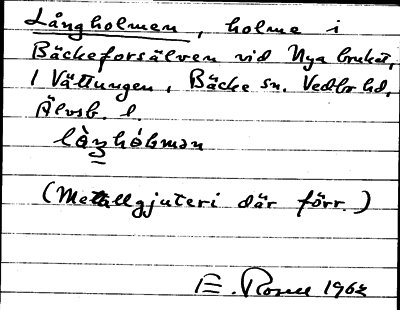 Långholmen, holme i
Bäckeforsälven vid Nya bruket,
i Vättungen, Bäcke sn. Vedbo hd,
Älvsb. l.
(Metallgjuteri där förr.)
E. Rosell 1962